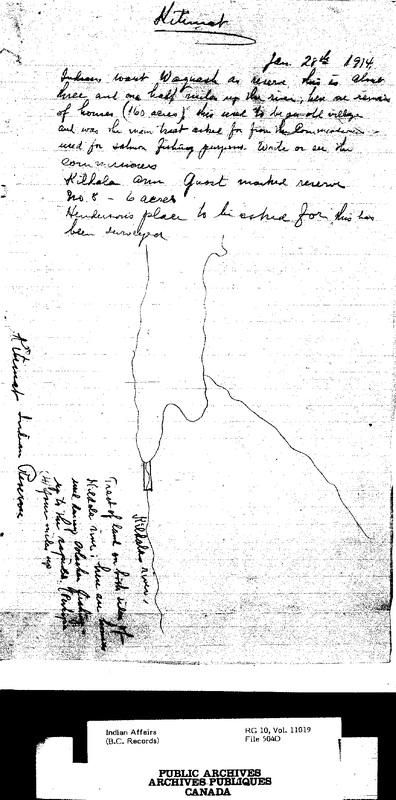 Kitimat
Jan. 28th 1914
Indians want Waquash as reserve this is about
three and one half miles up the river, here are remains
of houses (160 acres) this used to be an old village
and was the main tract asked for from the Commissioners
used for salmon fishing purposes. Write or see the
commissioners
Kildala Arm Quost marked reserve
No. 8 - 6 acres
Henderson's place to be asked for, this has
been surveyed
Kitimat Indian Reserve
Kildala river,
Tract of land on both sides of
Kildala river, here are houses
used during oolachan fishing
up to the rapids
four miles up
Indian Affairs
(B.C. Records)
RG 10, Vol. 11019
File 504D
PUBLIC ARCHIVES
ARCHIVES PUBLIQUES
CANADA